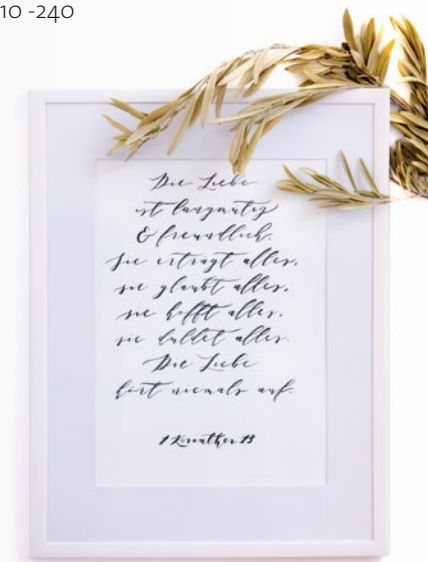 10 -240
Die Liebe
ist langmütig
& freundlich.
Sie erträgt alles,
sie glaubt alles,
sie hofft alles,
sie duldet alles.
Die Liebe
hört niemals auf.
1 Korinther 13